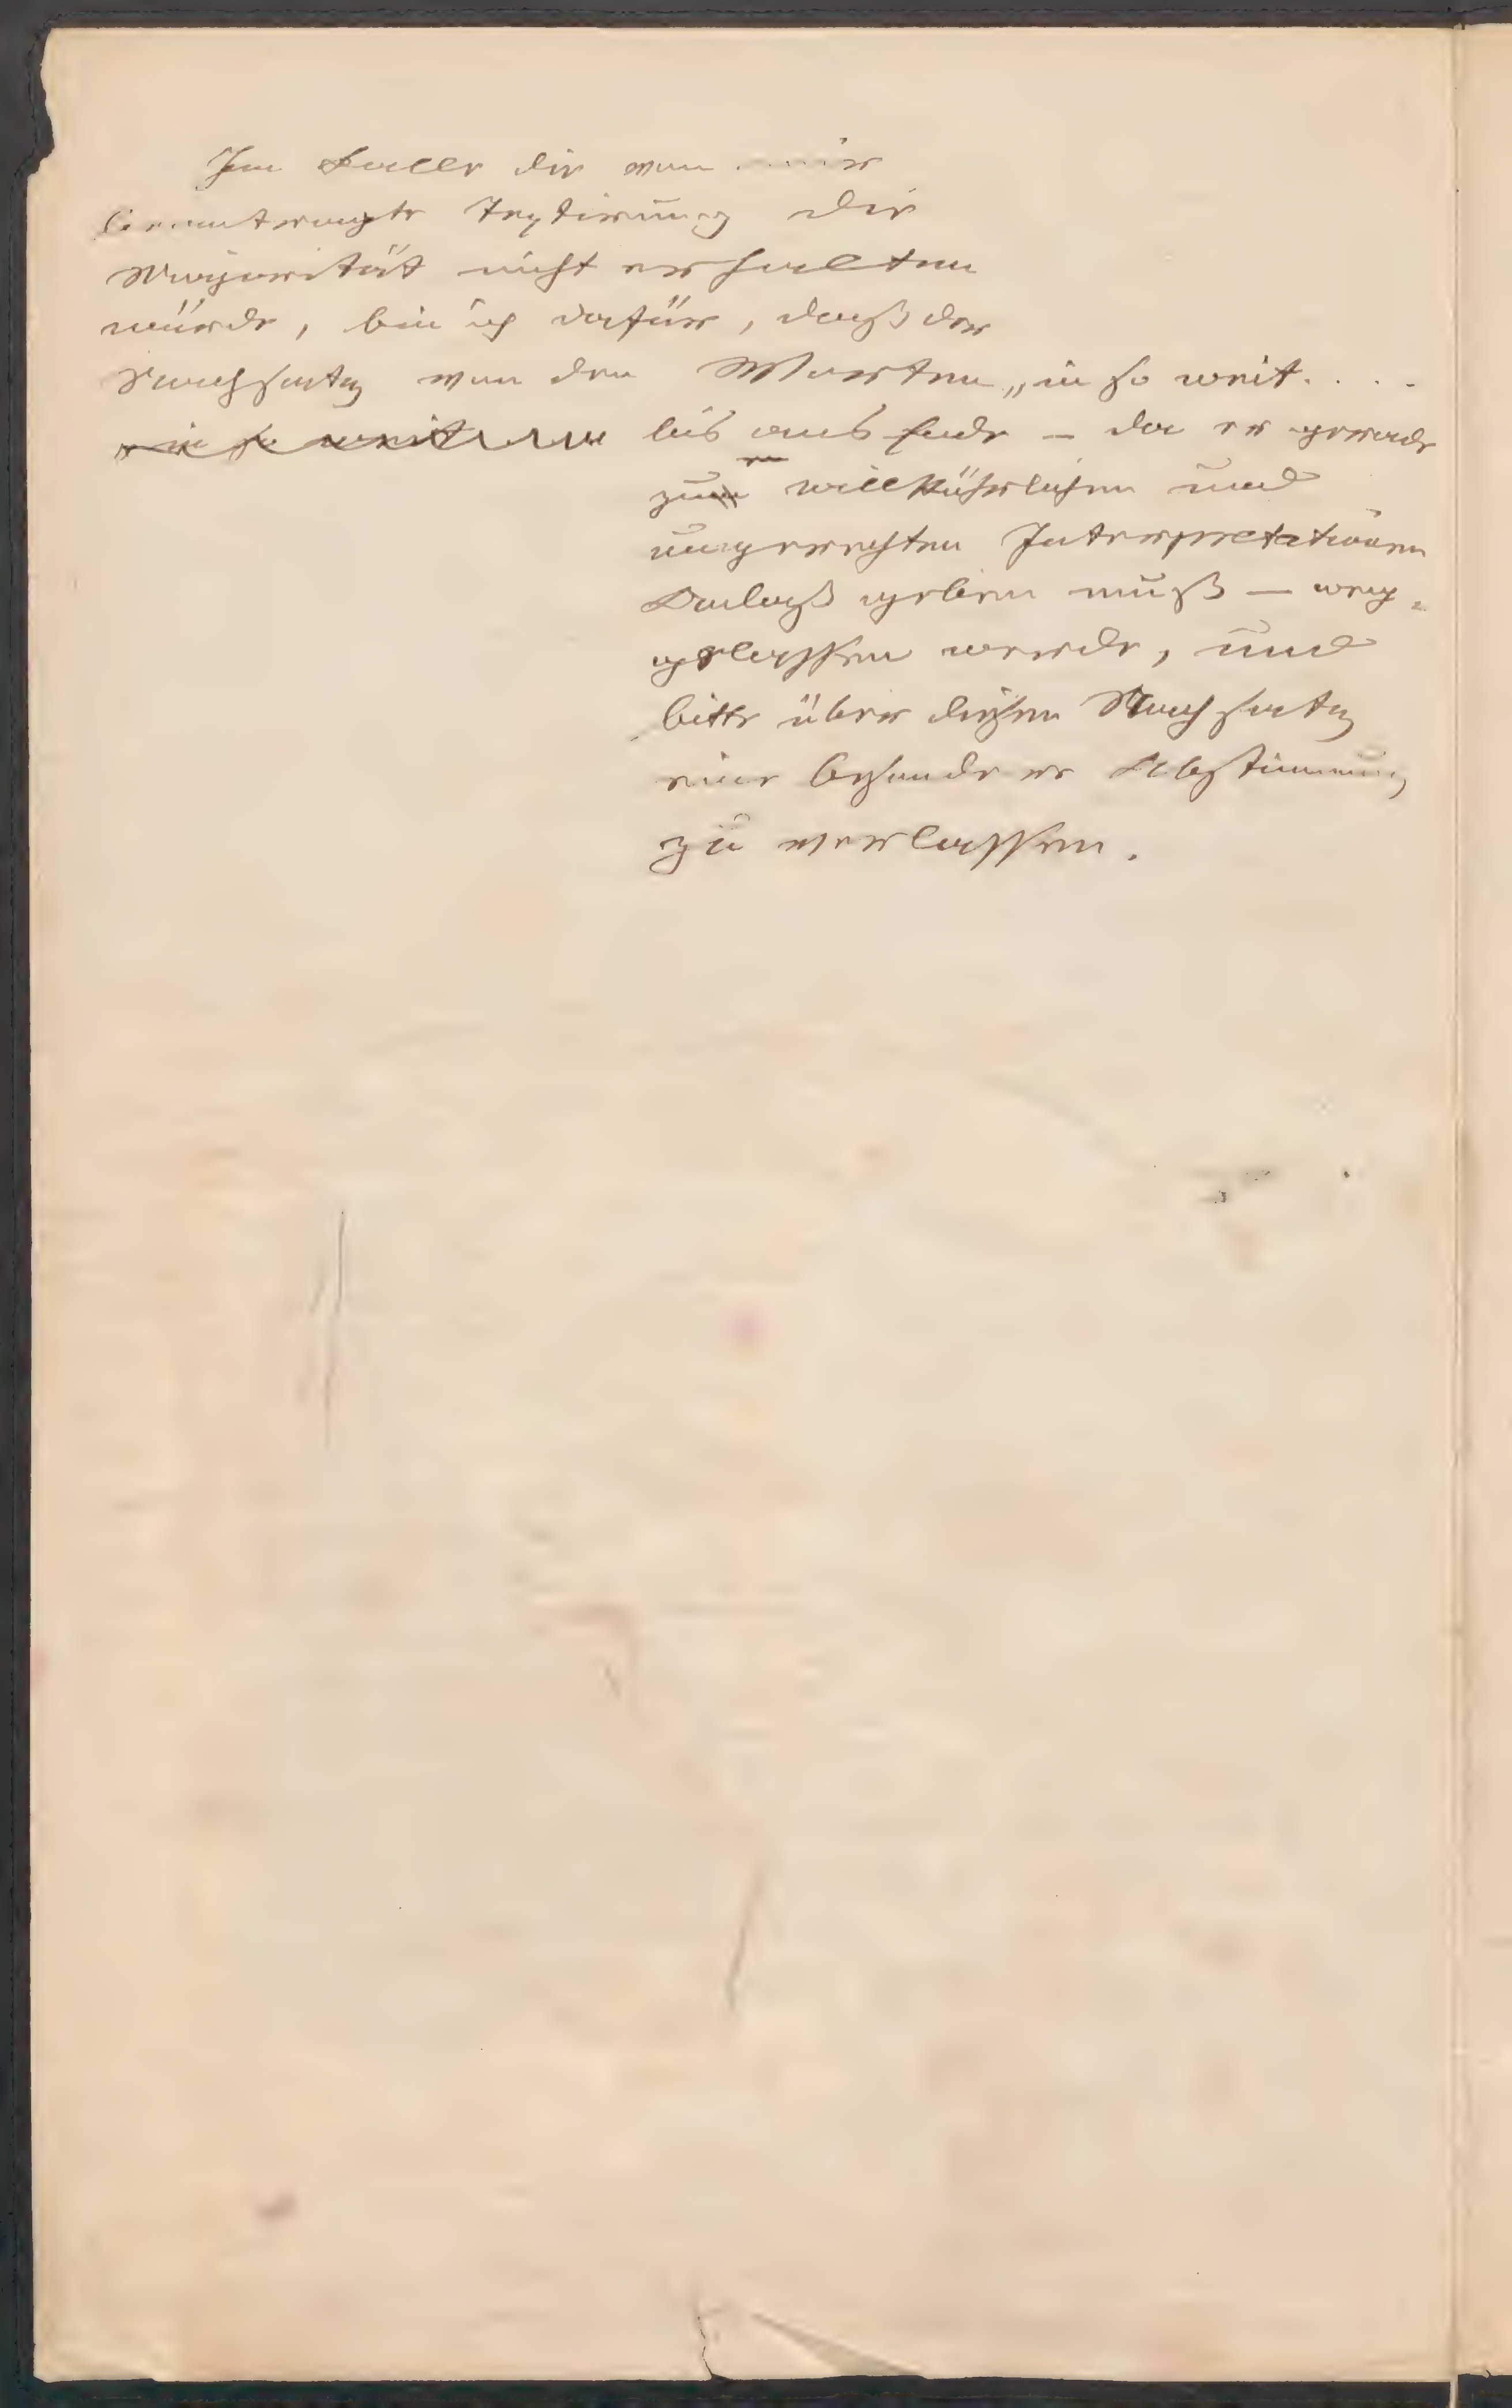 Im Falle die von mir
beantragte Textirung die
Majorität nicht erhalten
würde, bin ich dafür, daß der
Nachsatz von den Worten „in so weit. . . .
bis ans Ende – da er gerade
zu willkührlichen und
ungerechten Interpretationen
Anlaß geben muß – weg=
gelassen werde, und
bitte über diesen Nachsatz
eine besondere Abstimmung
zu veranlassen.